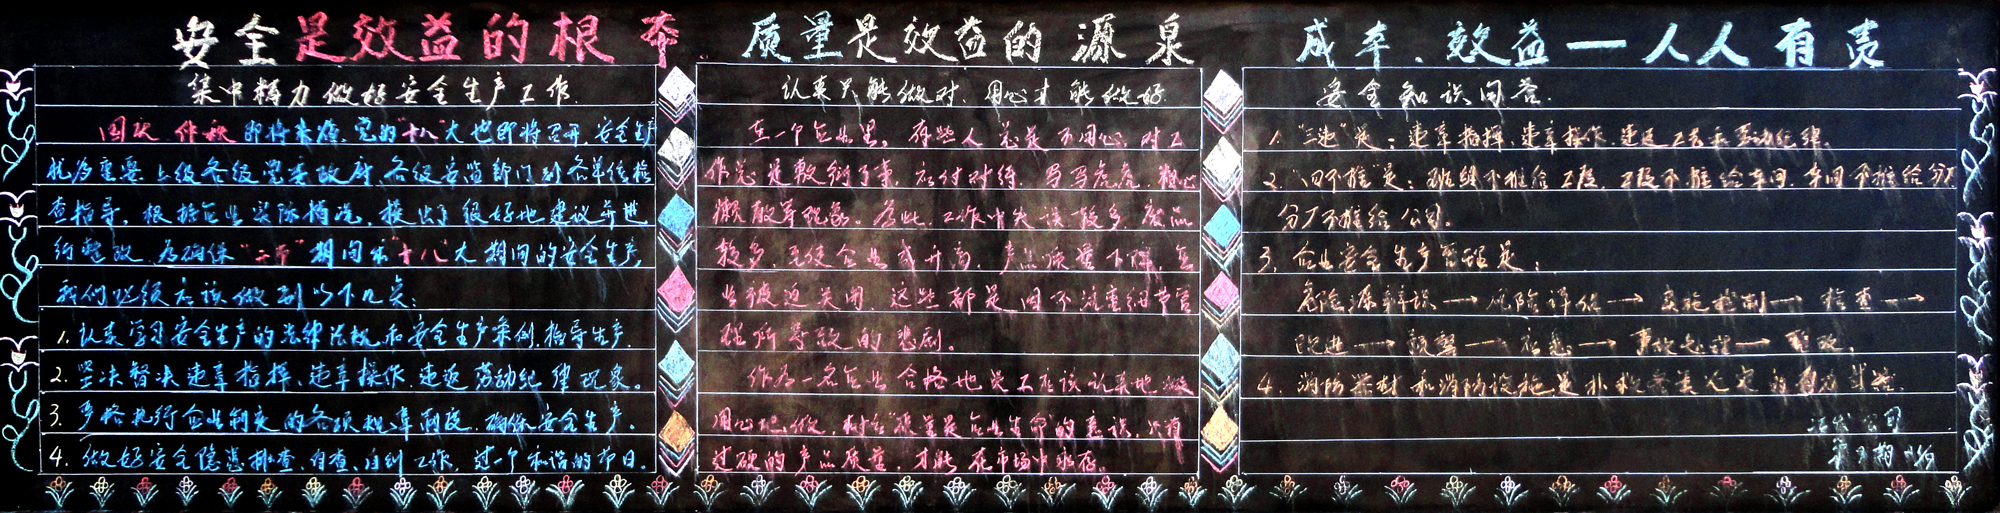 安全是效益的根本
集中精力做好安全生产工作
国庆、中秋即将来临，党的"十八"大也即将召开，安全生产
尤为重要，上级各级党委政府、各级安监部门到各单位检
查指导，根据企业实际情况，提出了很好地建议并进
行整改，为确保"二节"期间和"十八"大期间的安全生产，
我们必须应该做到以下几点：
1. 认真学习安全生产的法律法规和安全生产案例，指导生产。
2. 坚决暂决违章指挥、违章操作、违返劳动纪律现象。
3. 严格执行企业制定的各项规章制度，确保安全生产。
4. 做好安全隐患排查、自查、自纠工作，过一个和谐的节日。
质量是效益的源泉
认真只能做对，用心才能做好
在一个企业里，有些人总是不用心，对工
作总是敷衍了事，应付对待，马马虎虎，粗心
懒散等现象。为此，工作中失误较多，废品
较多，至使企业成本升高，产品质量下降，企
业被迫关闭，这些都是因不注重细节管
理所导致的悲剧。
作为一名企业合格地员工应该认真地
用心地做，树立"质量是企业生命"的意识，只有
过硬的产品质量，才能在市场中永存。
成本、效益——人人有责
安全知识问答
1. "三违"是：违章指挥、违章操作、违返工艺和劳动纪律。
2. "四不推"是：班组不推给工段，工段不推给车间，车间不推给分厂
分厂不推给公司。
3. 企业安全生产管理是：
危险源辨识→风险评估→实施控制→检查→
改进→预警→应急→事故处理→整改。
4. 消防器材和消防设施是扑救
公司
第9期